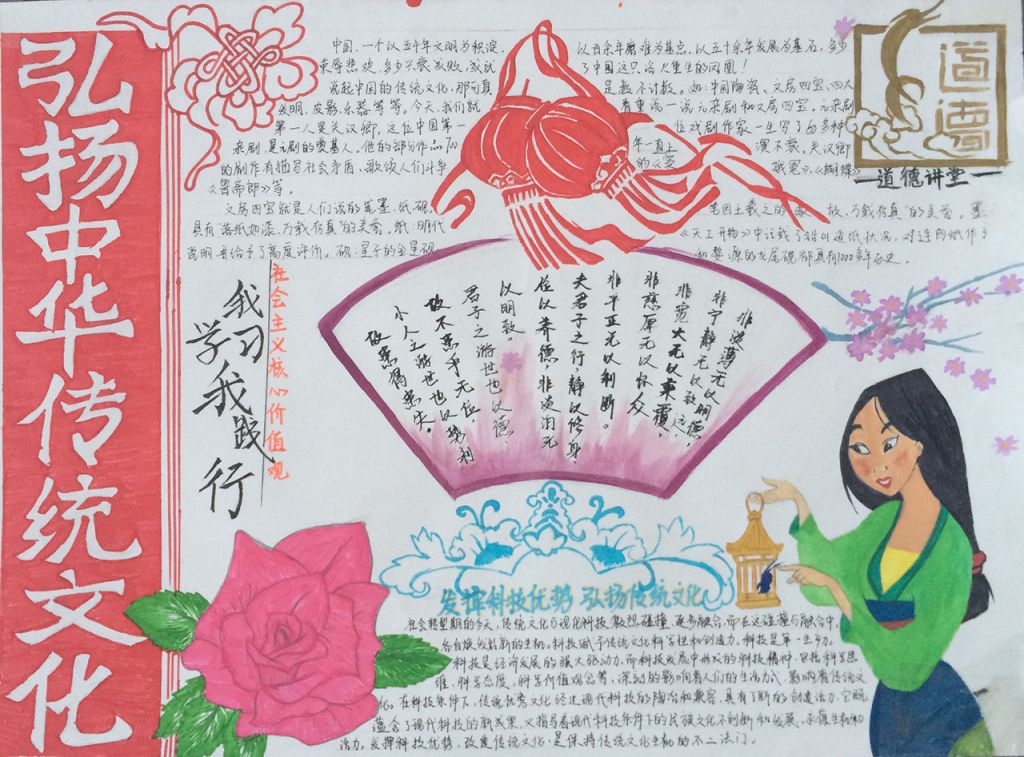 弘扬中华传统文化
中国,一个以五千年文明为积淀,
以百余年磨难为基点,以五十余年发展为基石,多少
束辱悲欢,多少兴衰成败,成就
了中国这只浴火重生的凤凰!
说起中国的传统文化,那可真
是数不计数。如:中国陶瓷、文房四宝、四大
发明、皮影、乐器等等。今天,我们就
着重说一说元杂剧和文房四宝。元杂剧
第一人是关汉卿,这位中国第
位戏剧作家一生写了60多种
杂剧是元剧的奠基人。他的部分作品
年一直上
演不衰。关汉卿
的剧作有描写社会矛盾、歌颂人们斗争
的《窦
娥冤》、《蝴蝶》
《鲁斋郎》等。
文房四宝就是人们说的笔、墨、纸、砚。
具有“落纸如漆,万载存真”的美誉。纸:明代
万载存真”的美誉。墨
《天工开物》中记载了
造纸状况,对连四纸作了
说明并给予了高度评价。砚:星子的金星砚
和婺源的龙尾砚都具有1000多年历史。
道德
道德讲堂
社会主义核心价值观
我习我践行
学
非淡薄无以明德
非宁静无以致远,
非宽大无以兼覆,
非慈厚无以怀众
非平正无以制断。
夫君子之行,静以修身,
俭以养德,非淡泊无
以明致。
君子之游世也以德
故不患乎无位,
小人之游世也以势利
故患得患失。
发挥科技优势 弘扬传统文化
社会转型期的今天,传统文化与现代科技激烈碰撞,逐步融合,而在这碰撞与融合中,
各自焕发新的生机。科技赋予传统文化科学性和创造力。科技是第一生产力。
科技是经济发展的强大驱动力,而科技发展中形成的科技精神,包括科学思
维、科学态度、科学价值观念等,深刻的影响着人们的生活方式,影响着传统文
化。在科技条件下,传统优秀文化经过现代科技的陶冶和兼容,具有了新的创造活力,它既
蕴含了现代科技的新成果,又指导着现代科技条件下的民族文化不创新和发展,永葆生机和
活力。发挥科技优势,改造传统文化,是保持传统文化生机的不二法门。